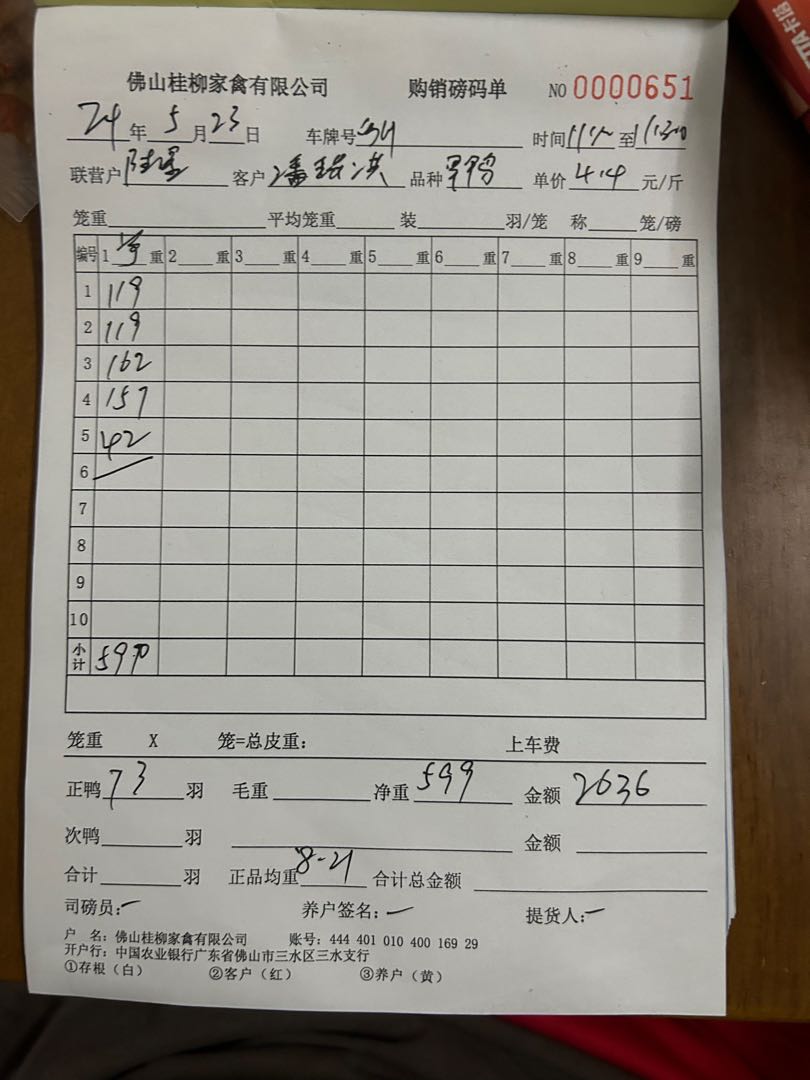 佛山桂柳家禽有限公司 购销磅码单 NO 0000651
24年5月23日 车牌号 时间 至
联营户 客户潘 洪 品种 单价4.4元/斤
笼重 平均笼重 装 羽/笼 称 笼/磅
编号 1 重 2 重 3 重 4 重 5 重 6 重 7 重 8 重 9 重
1 119
2 119
3 162
4 157
5 42
6
7
8
9
10
小计 599
笼重 X 笼=总皮重: 上车费
正鸭73羽 毛重 净重599 金额2636
次鸭 羽 金额
合计 羽 正品均重8-21 合计总金额
司磅员: 养户签名: 提货人:
户 名: 佛山桂柳家禽有限公司 账号: 444 401 010 400 169 29
开户行: 中国农业银行广东省佛山市三水区三水支行
①存根(白) ②客户(红) ③养户(黄)